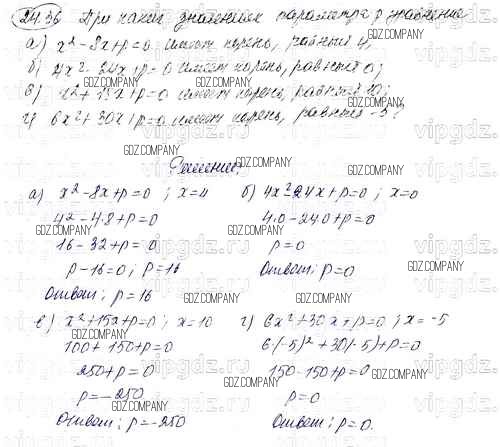 24.36 При каких значениях параметра p уравнение
а) x² - 8x + p = 0 имеет корень, равный 4;
б) 4x² - 24x + p = 0 имеет корень, равный 0;
в) x² + 15x + p = 0 имеет корень, равный 10;
г) 6x² + 30x + p = 0 имеет корень, равный -5?
Решение:
а) x² - 8x + p = 0 ; x = 4
4² - 4·8 + p = 0
16 - 32 + p = 0
p - 16 = 0 ; p = 16
Ответ: p = 16
б) 4x² - 24x + p = 0 ; x = 0
4·0 - 24·0 + p = 0
p = 0
Ответ: p = 0
в) x² + 15x + p = 0 ; x = 10
100 + 150 + p = 0
250 + p = 0
p = -250
Ответ: p = -250
г) 6x² + 30x + p = 0 ; x = -5
6(-5)² + 30(-5) + p = 0
150 - 150 + p = 0
p = 0
Ответ: p = 0.
GDZ.COMPANY
vipgdz.ru